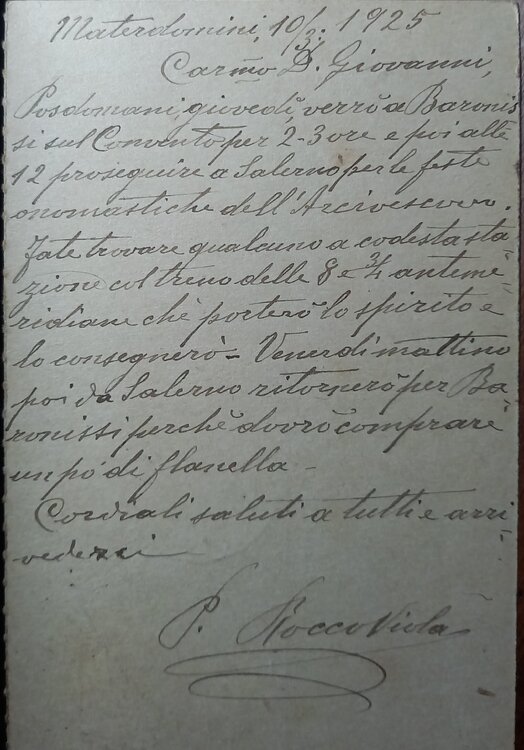 Materdomini, 10/3. 1925
Carmo D. Giovanni,
Posdomani, giovedì, verrò a Baronis
si sul Convento per 2-3 ore e poi alle
12 proseguire a Salerno per le feste
onomastiche dell'Arcivescovo.
Fate trovare qualcuno a codesta sta
zione col treno delle 8 e 3/4 antime-
ridiane chè porterò lo spirito e
lo consegnerò - Venerdì mattino
poi da Salerno ritornerò per Ba-
ronissi perchè dovrò comprare
un pò di flanella -
Cordiali saluti a tutti e arri-
vederci
P. Rocco Viola